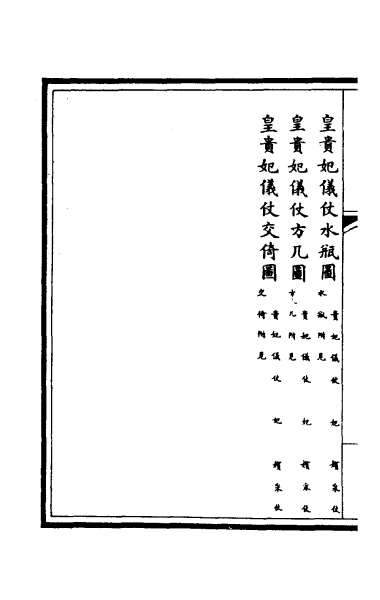 皇貴妃儀仗水瓶圖 貴妃儀仗 妃 嬪采仗
水瓶附見
皇貴妃儀仗方几圖 貴妃儀仗 妃 嬪采仗
方几附見
皇貴妃儀仗交倚圖 貴妃儀仗 妃 嬪采仗
交倚附見